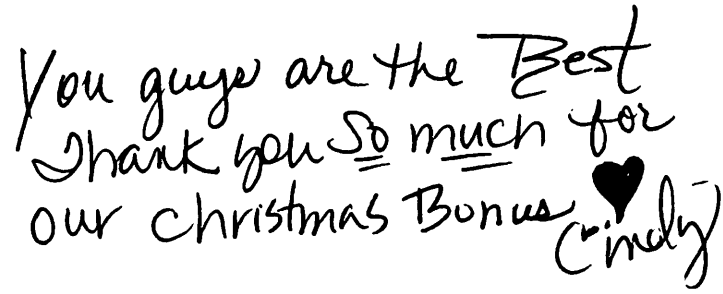 You guys are the Best
Thank you So much for
our christmas Bonus
Cindy